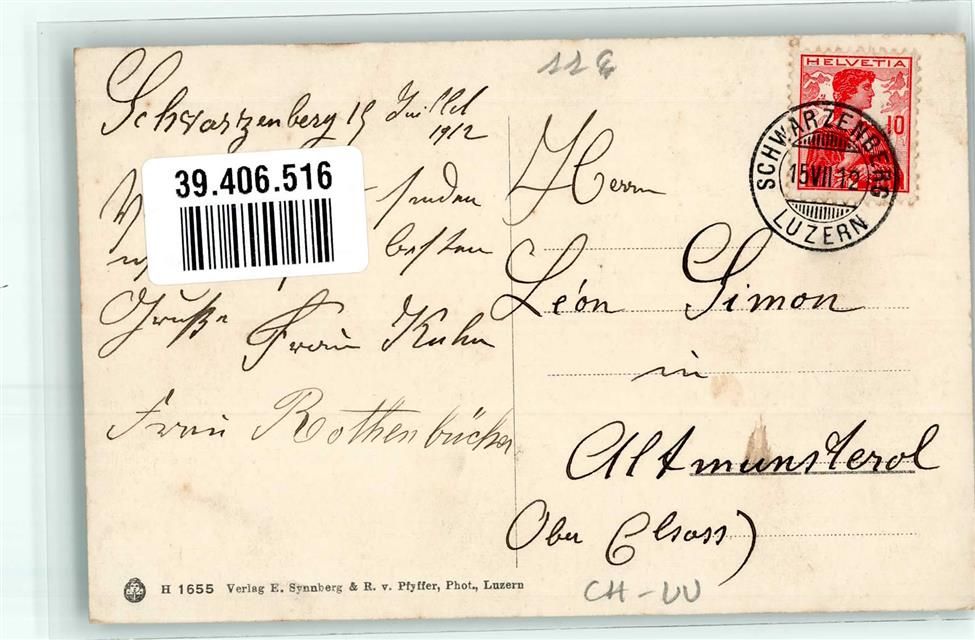 11 €
Schwarzenberg 15 Juillet
1912
39.406.516
senden
besten
Grüße
Frau Kuhn
Frau Rothenbücher
HELVETIA
10
SCHWARZENBERG
15 VII 12
LUZERN
Herrn
Léon Simon
in
Altmunsterol
Ober Elsass)
H 1655 Verlag E. Synnberg & R. v. Pfyffer, Phot., Luzern
CH-LU